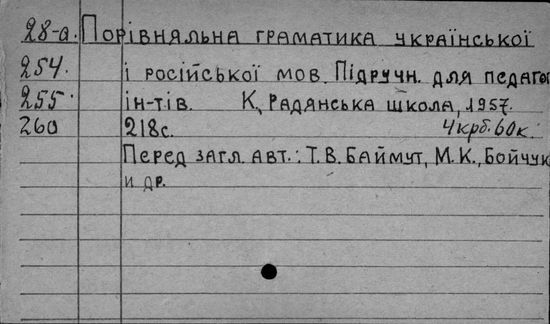 28-а. Порівняльна граматика української
254. і російської мов. Підручн. для педагог
255. ін-тів. К., Радянська школа, 1957.
260 218с. 4крб.60к.
Перед загл. авт.: Т.В. Баймут, М.К., Бойчук
и др.